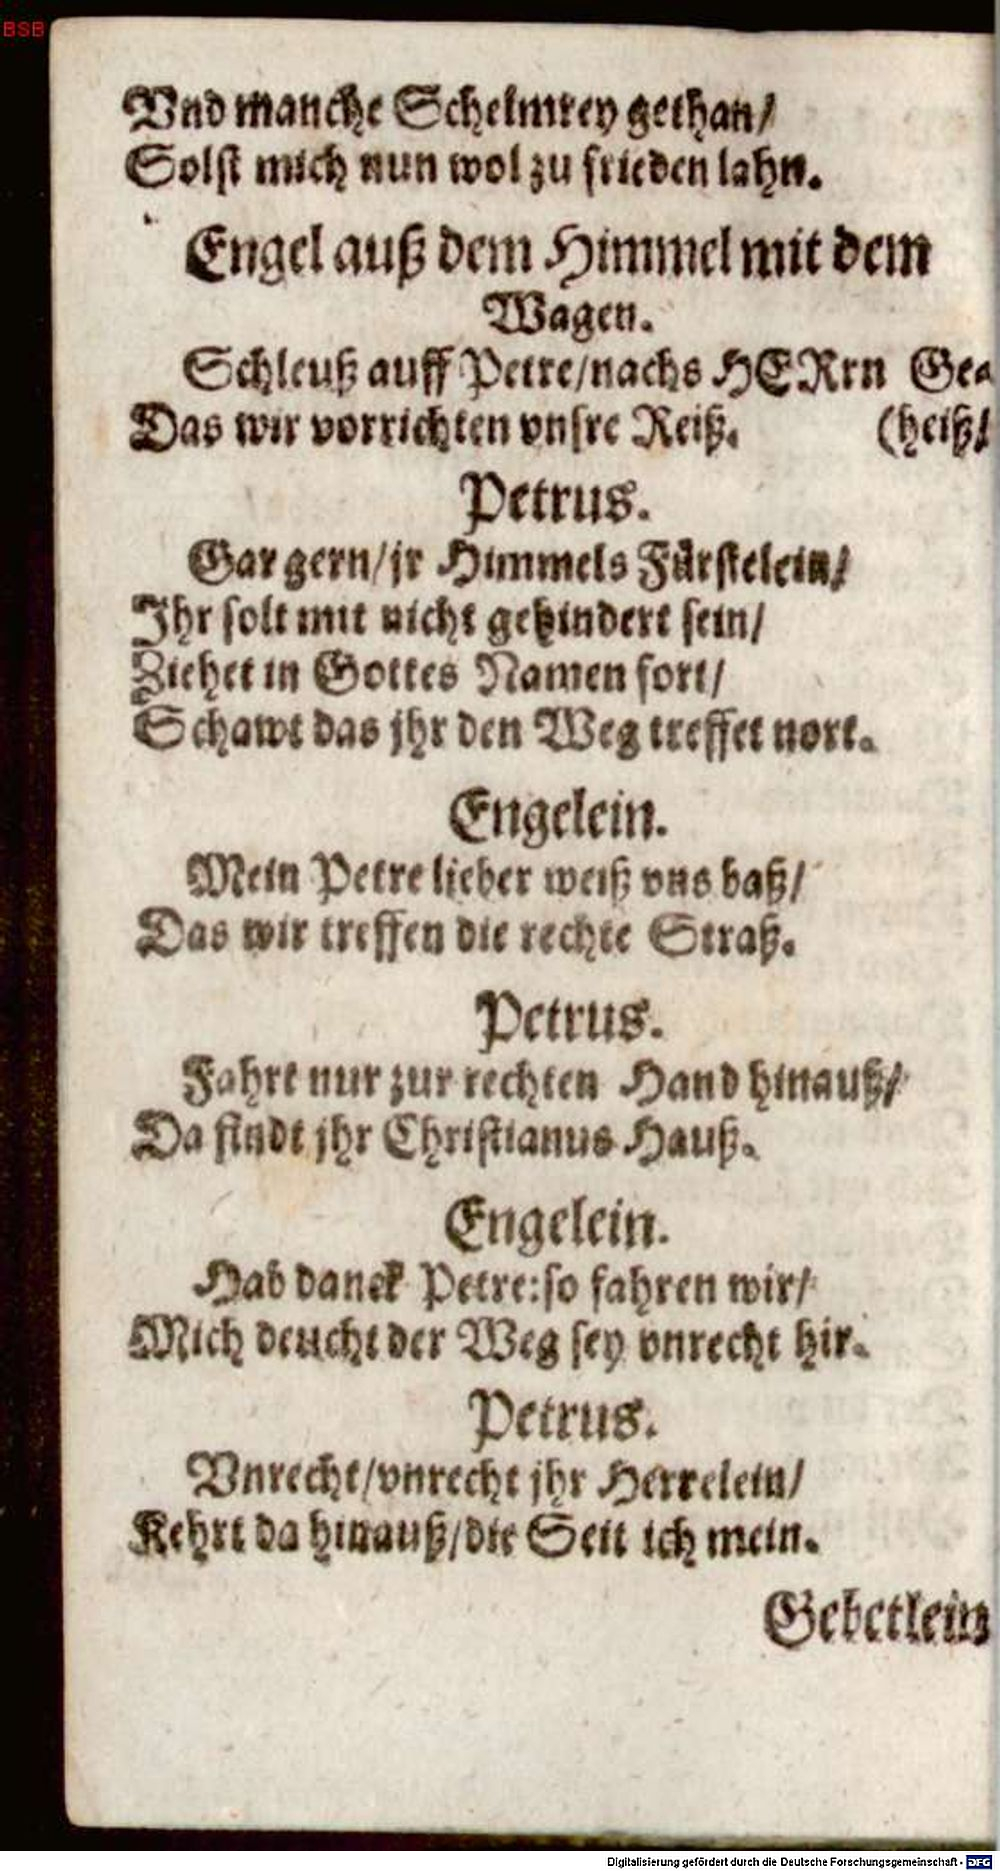 BSB
Vnd manche Schelmrey gethan/
Solst mich nun wol zu frieden lahn.
Engel auß dem Himmel mit dem
Wagen.
Schleuß auff Petre/nachs HERrn Ge-
Das wir vorrichten vnsre Reiß. (heiß/
Petrus.
Gar gern/jr Himmels Fürstelein/
Ihr solt mit nicht gehindert sein/
Ziehet in Gottes Namen fort/
Schawt das jhr den Weg treffet nort.
Engelein.
Mein Petre lieber weiß vns baß/
Das wir treffen die rechte Straß.
Petrus.
Fahrt nur zur rechten Hand hinauß/
Da findt jhr Christianus Hauß.
Engelein.
Hab danck Petre:so fahren wir/
Mich deucht der Weg sey vnrecht hir.
Petrus.
Vnrecht/vnrecht jhr Herrelein/
Kehrt da hinauß/die Seit ich mein.
Gebetlein
Digitalisierung gefördert durch die Deutsche Forschungsgemeinschaft - DFG